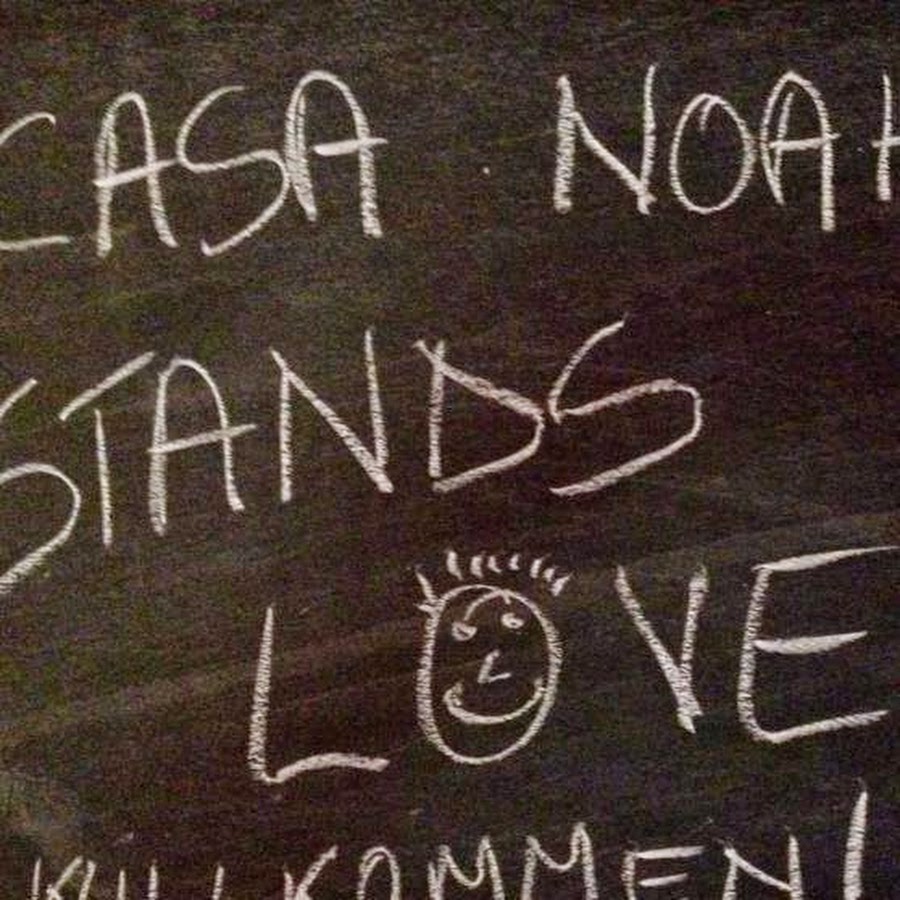 CASA NOAH
STANDS
LOVE
WILLKOMMEN!